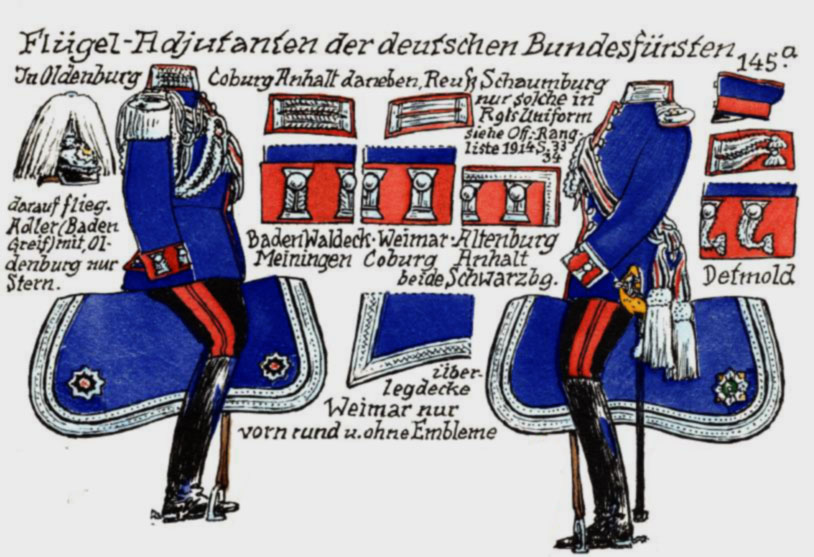 Flügel-Adjutanten der deutschen Bundesfürsten
145.a
In Oldenburg
Coburg Anhalt daneben, Reuß Schaumburg
nur solche in
Rgls Uniform
siehe Off.-Rang-
liste 1914 S. 33
34
darauf flieg.
Adler (Baden
Greif) mit, Ol-
denburg nur
Stern.
Baden Waldeck · Weimar · Altenburg
Meiningen Coburg Anhalt
beide Schwarzbg.
Detmold
über-
legdecke
Weimar nur
vorn rund u. ohne Embleme